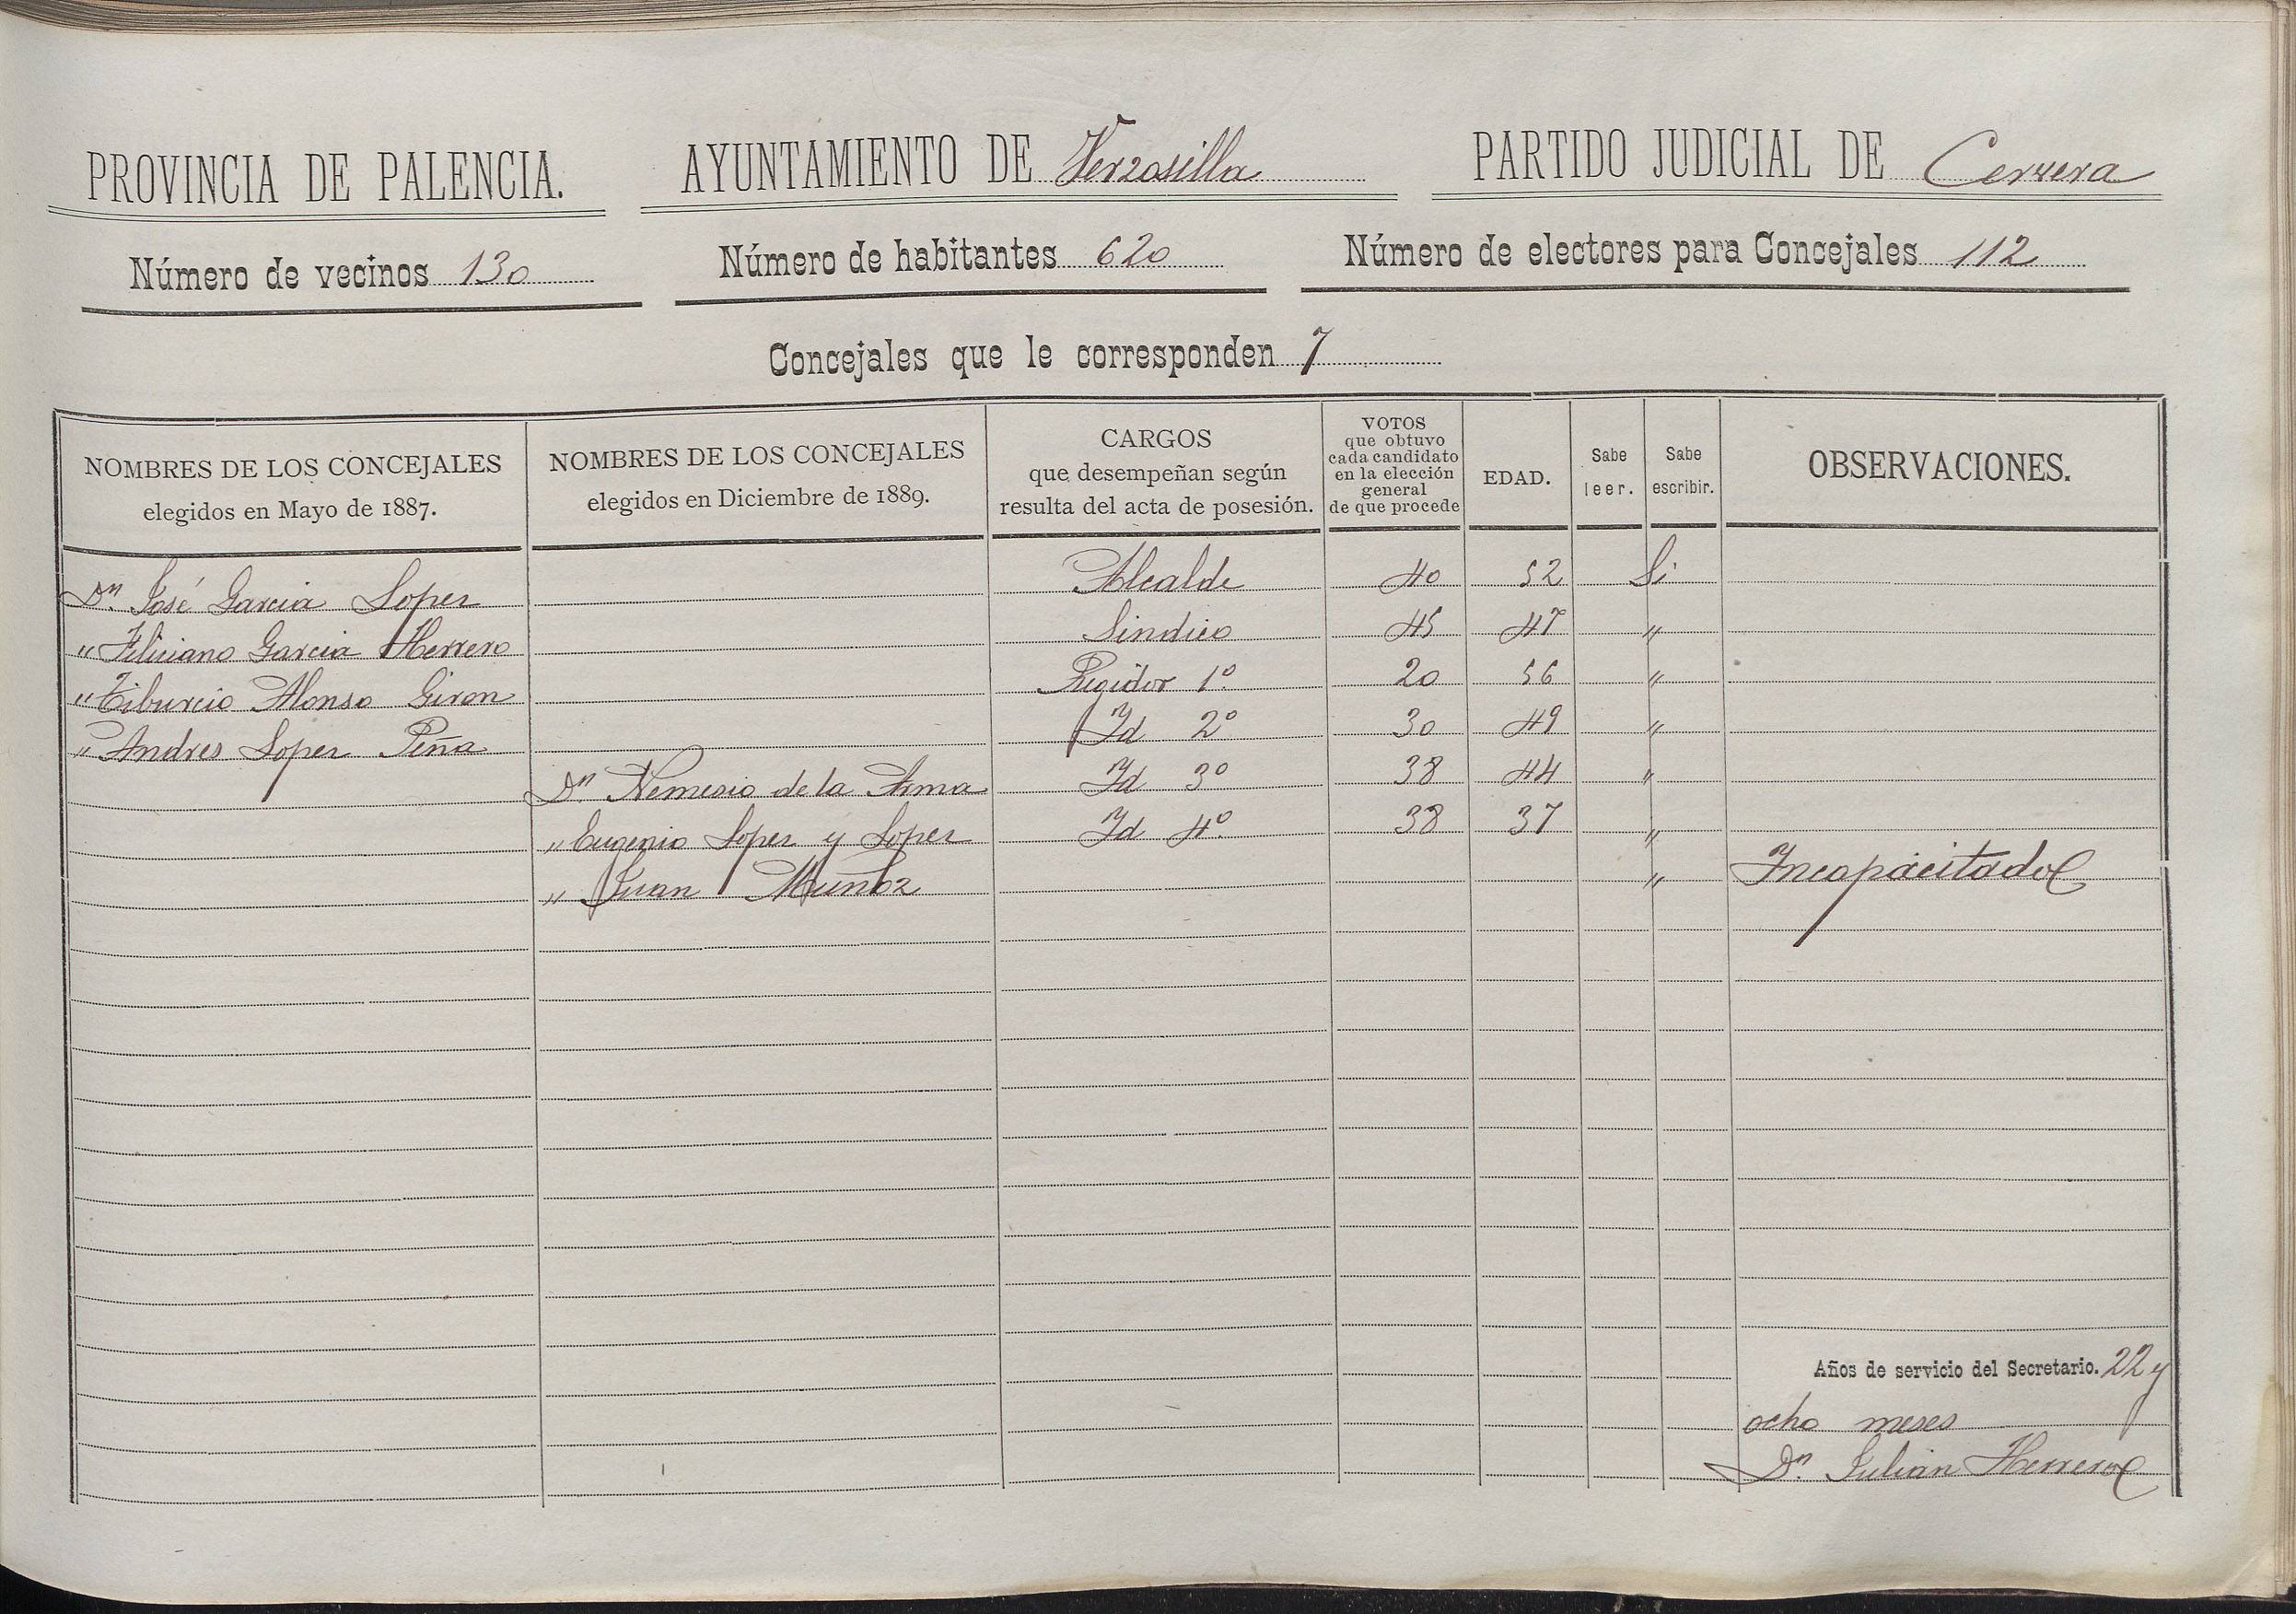 PROVINCIA DE PALENCIA. AYUNTAMIENTO DE Verzosilla PARTIDO JUDICIAL DE Cervera
Número de vecinos 130 Número de habitantes 620 Número de electores para Concejales 112
Concejales que le corresponden 7
NOMBRES DE LOS CONCEJALES
elegidos en Mayo de 1887.
NOMBRES DE LOS CONCEJALES
elegidos en Diciembre de 1889.
CARGOS
que desempeñan según
resulta del acta de posesión.
VOTOS
que obtuvo
cada candidato
en la elección
general
de que procede
EDAD.
Sabe
leer.
Sabe
escribir.
OBSERVACIONES.
Dn. José Garcia Lopez Alcalde 40 52 Si
" Feliciano Garcia Herrero Sindico 45 47 "
" Tiburcio Alonso Giron Regidor 1º. 20 56 "
" Andres Lopez Peña Id 2º 30 49 "
Dn. Nemesio de la Arma Id 3º 38 44 "
" Eugenio Lopez y Lopez Id 4º. 38 37 "
" Juan Muñoz " Incapacitado
Años de servicio del Secretario. 22 y
ocho meses
Dn. Julian Herrero